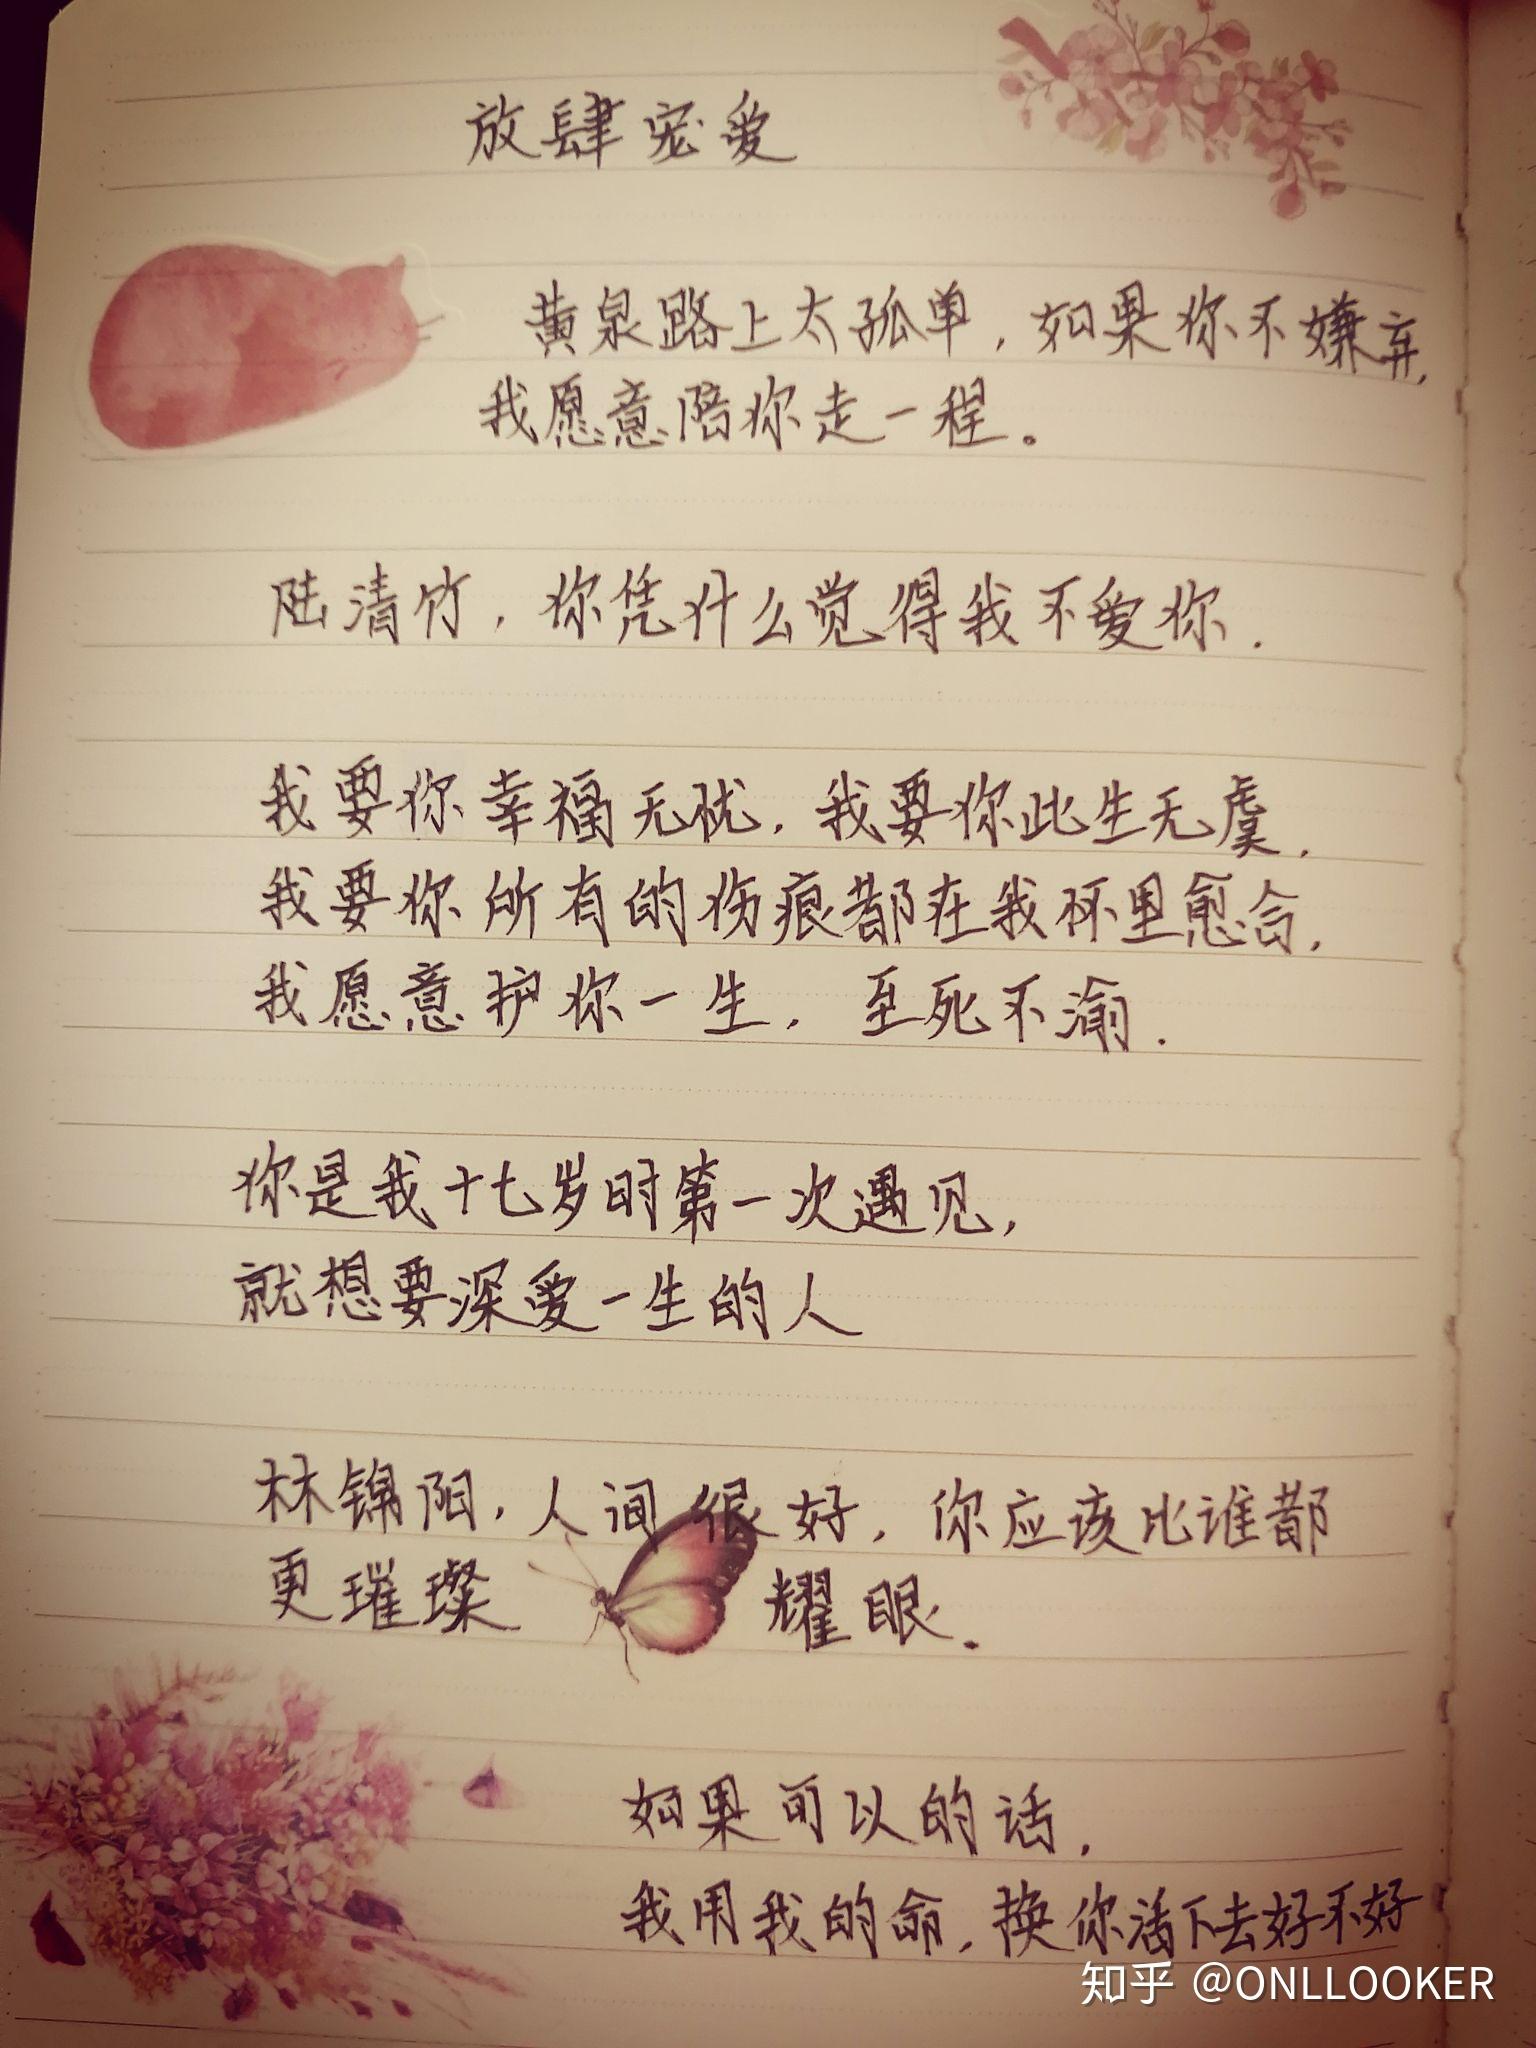 放肆宠爱
黄泉路上太孤单，如果你不嫌弃，
我愿意陪你走一程。
陆清竹，你凭什么觉得我不爱你.
我要你幸福无忧，我要你此生无虞，
我要你所有的伤痕都在我怀里愈合，
我愿意护你一生，至死不渝.
你是我十七岁时第一次遇见，
就想要深爱一生的人
林锦阳，人间很好，你应该比谁都
更璀璨耀眼.
如果可以的话，
我用我的命，换你活下去好不好
知乎 @ONLLOOKER